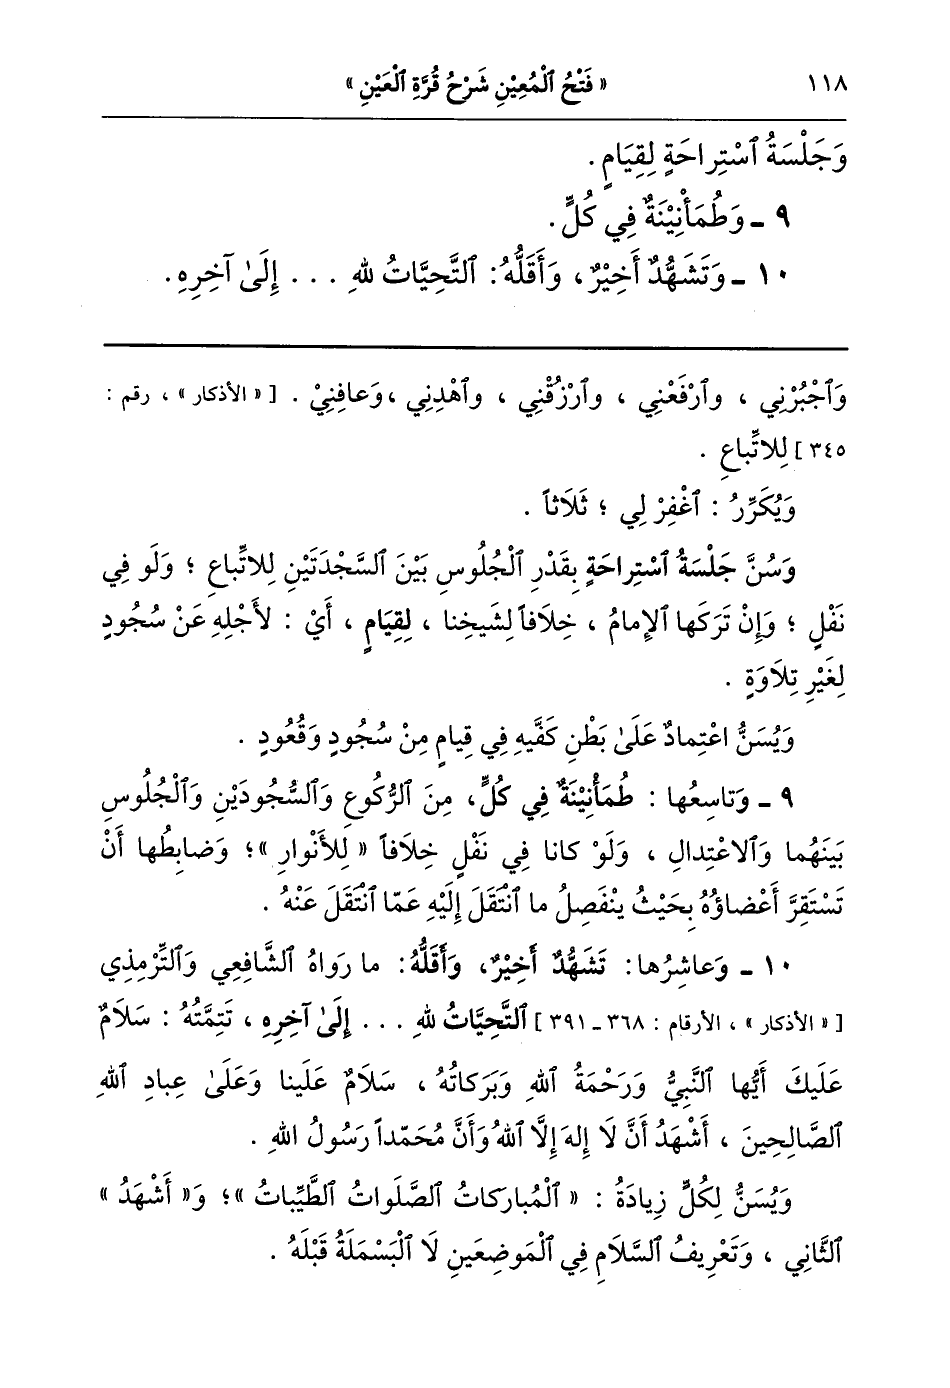 ١١٨ « فَتْحُ ٱلْمُعِيْنِ شَرْحُ قُرَّةِ ٱلْعَيْنِ »
وَجَلْسَةُ ٱسْتِراحَةٍ لِقِيَامٍ.
٩ ـ وَطُمَأْنِيْنَةٌ فِي كُلٍّ.
١٠ ـ وَتَشَهُّدٌ أَخِيْرٌ، وَأَقَلُّهُ: ٱلتَّحِيَّاتُ للهِ ... إِلَىٰ آخِرِهِ.
وَٱجْبُرْنِي ، وٱرْفَعْنِي ، وٱرْزُقْنِي ، وٱهْدِنِي ، وَعافِنِيْ . [ « الأذكار » ، رقم :
٣٤٥ ] لِلاتِّباعِ .
وَيُكَرِّرُ : ٱغْفِرْ لِي ؛ ثَلَاثاً .
وَسُنَّ جَلْسَةُ ٱسْتِراحَةٍ بِقَدْرِ ٱلْجُلُوسِ بَيْنَ ٱلسَّجْدَتَيْنِ لِلاتِّباعِ ؛ وَلَو فِي
نَفْلٍ ؛ وَإِنْ تَرَكَها ٱلإِمامُ ، خِلَافاً لِشَيخِنا ، لِقِيَامٍ ، أَيْ : لأَجْلِهِ عَنْ سُجُودٍ
لِغَيْرِ تِلَاوَةٍ .
وَيُسَنُّ اعْتِمادٌ عَلَىٰ بَطْنِ كَفَّيهِ فِي قِيامٍ مِنْ سُجُودٍ وَقُعُودٍ .
٩ ـ وَتاسِعُها : طُمَأْنِيْنَةٌ فِي كُلٍّ، مِنَ ٱلرُّكُوعِ وَٱلسُّجُودَيْنِ وَٱلْجُلُوسِ
بَيَنَهُما وَٱلاعْتِدالِ ، وَلَوْ كانا فِي نَفْلٍ خِلَافاً « لِلأَنْوارِ »؛ وَضابِطُها أَنْ
تَسْتَقِرَّ أَعْضاؤُهُ بِحَيْثُ يَنْفَصِلُ ما ٱنْتَقَلَ إِلَيْهِ عَمّا ٱنْتَقَلَ عَنْهُ .
١٠ ـ وَعاشِرُها: تَشَهُّدٌ أَخِيْرٌ، وَأَقَلُّهُ: ما رَواهُ ٱلشَّافِعِي وَٱلتِّرْمِذِي
[ « الأذكار » ، الأرقام : ٣٦٨ ـ ٣٩١ ] ٱلتَّحِيَّاتُ للهِ ... إِلَىٰ آخِرِهِ ، تَتِمَّتُهُ : سَلَامٌ
عَلَيكَ أَيُّها ٱلنَّبِيُّ وَرَحْمَةُ ٱللهِ وَبَرَكاتُهُ ، سَلَامٌ عَلَينا وَعَلَىٰ عِبادِ ٱللهِ
ٱلصَّالِحِينَ ، أَشْهَدُ أَنَّ لَا إِلهَ إِلَّا ٱللهُ وَأَنَّ مُحَمّداً رَسُولُ اللهِ .
وَيُسَنُّ لِكُلٍّ زِيادَةُ : « ٱلْمُبارَكاتُ ٱلصَّلَواتُ ٱلطَّيِّباتُ »؛ وَ« أَشْهَدُ »
ٱلثَّانِي ، وَتَعْرِيفُ ٱلسَّلَامِ فِي ٱلْمَوضِعَينِ لَا ٱلْبَسْمَلَةُ قَبْلَهُ .